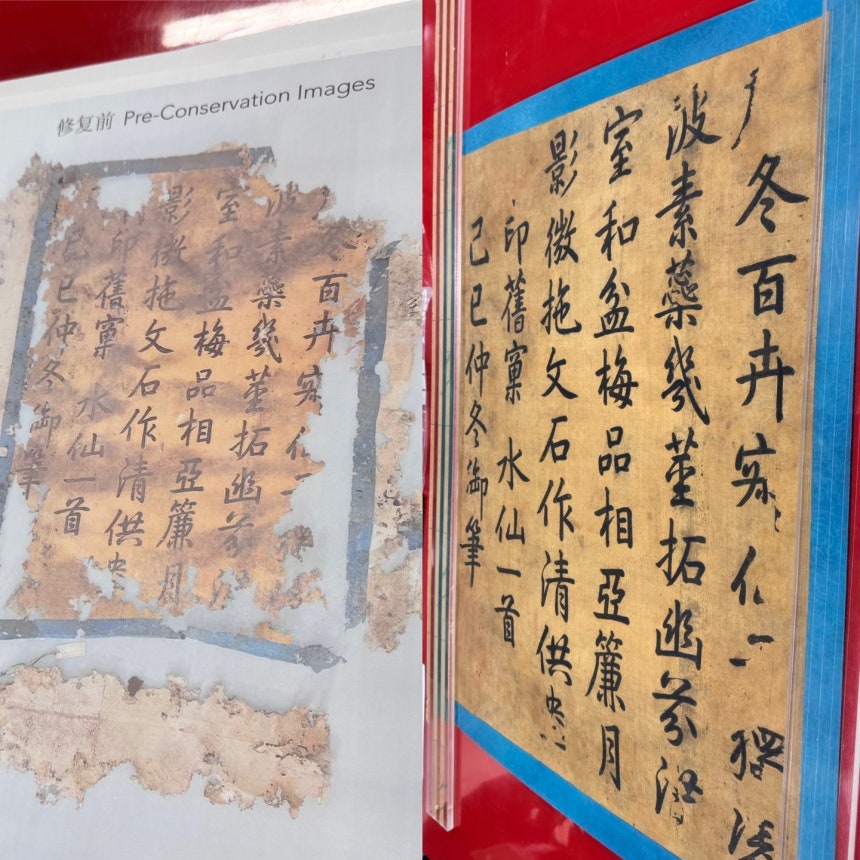 修复前 Pre-Conservation Images
冬百卉
波素蘂幾莖拓幽芬
室和盆梅品相亞簾月
影微拖文石作清供
印舊窠 水仙一首
己巳仲冬御筆
冬百卉
波素蘂幾莖拓幽芬
室和盆梅品相亞簾月
影微拖文石作清供
印舊窠 水仙一首
己巳仲冬御筆